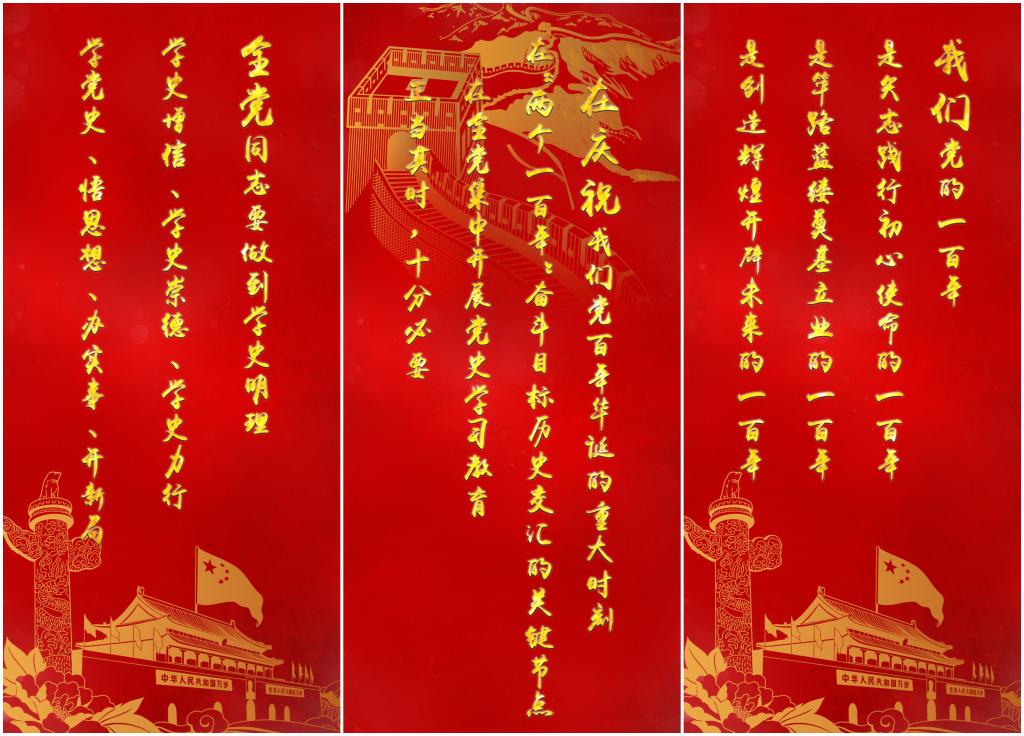 我们党的一百年
是矢志践行初心使命的一百年
是筚路蓝缕奠基立业的一百年
是创造辉煌开辟未来的一百年
在庆祝我们党百年华诞的重大时刻
在“两个一百年”奋斗目标历史交汇的关键节点
在全党集中开展党史学习教育
正当其时，十分必要
全党同志要做到学史明理
学史增信、学史崇德、学史力行
学党史、悟思想、办实事、开新局
中华人民共和国万岁
世界人民大团结万岁
中华人民共和国万岁
世界人民大团结万岁